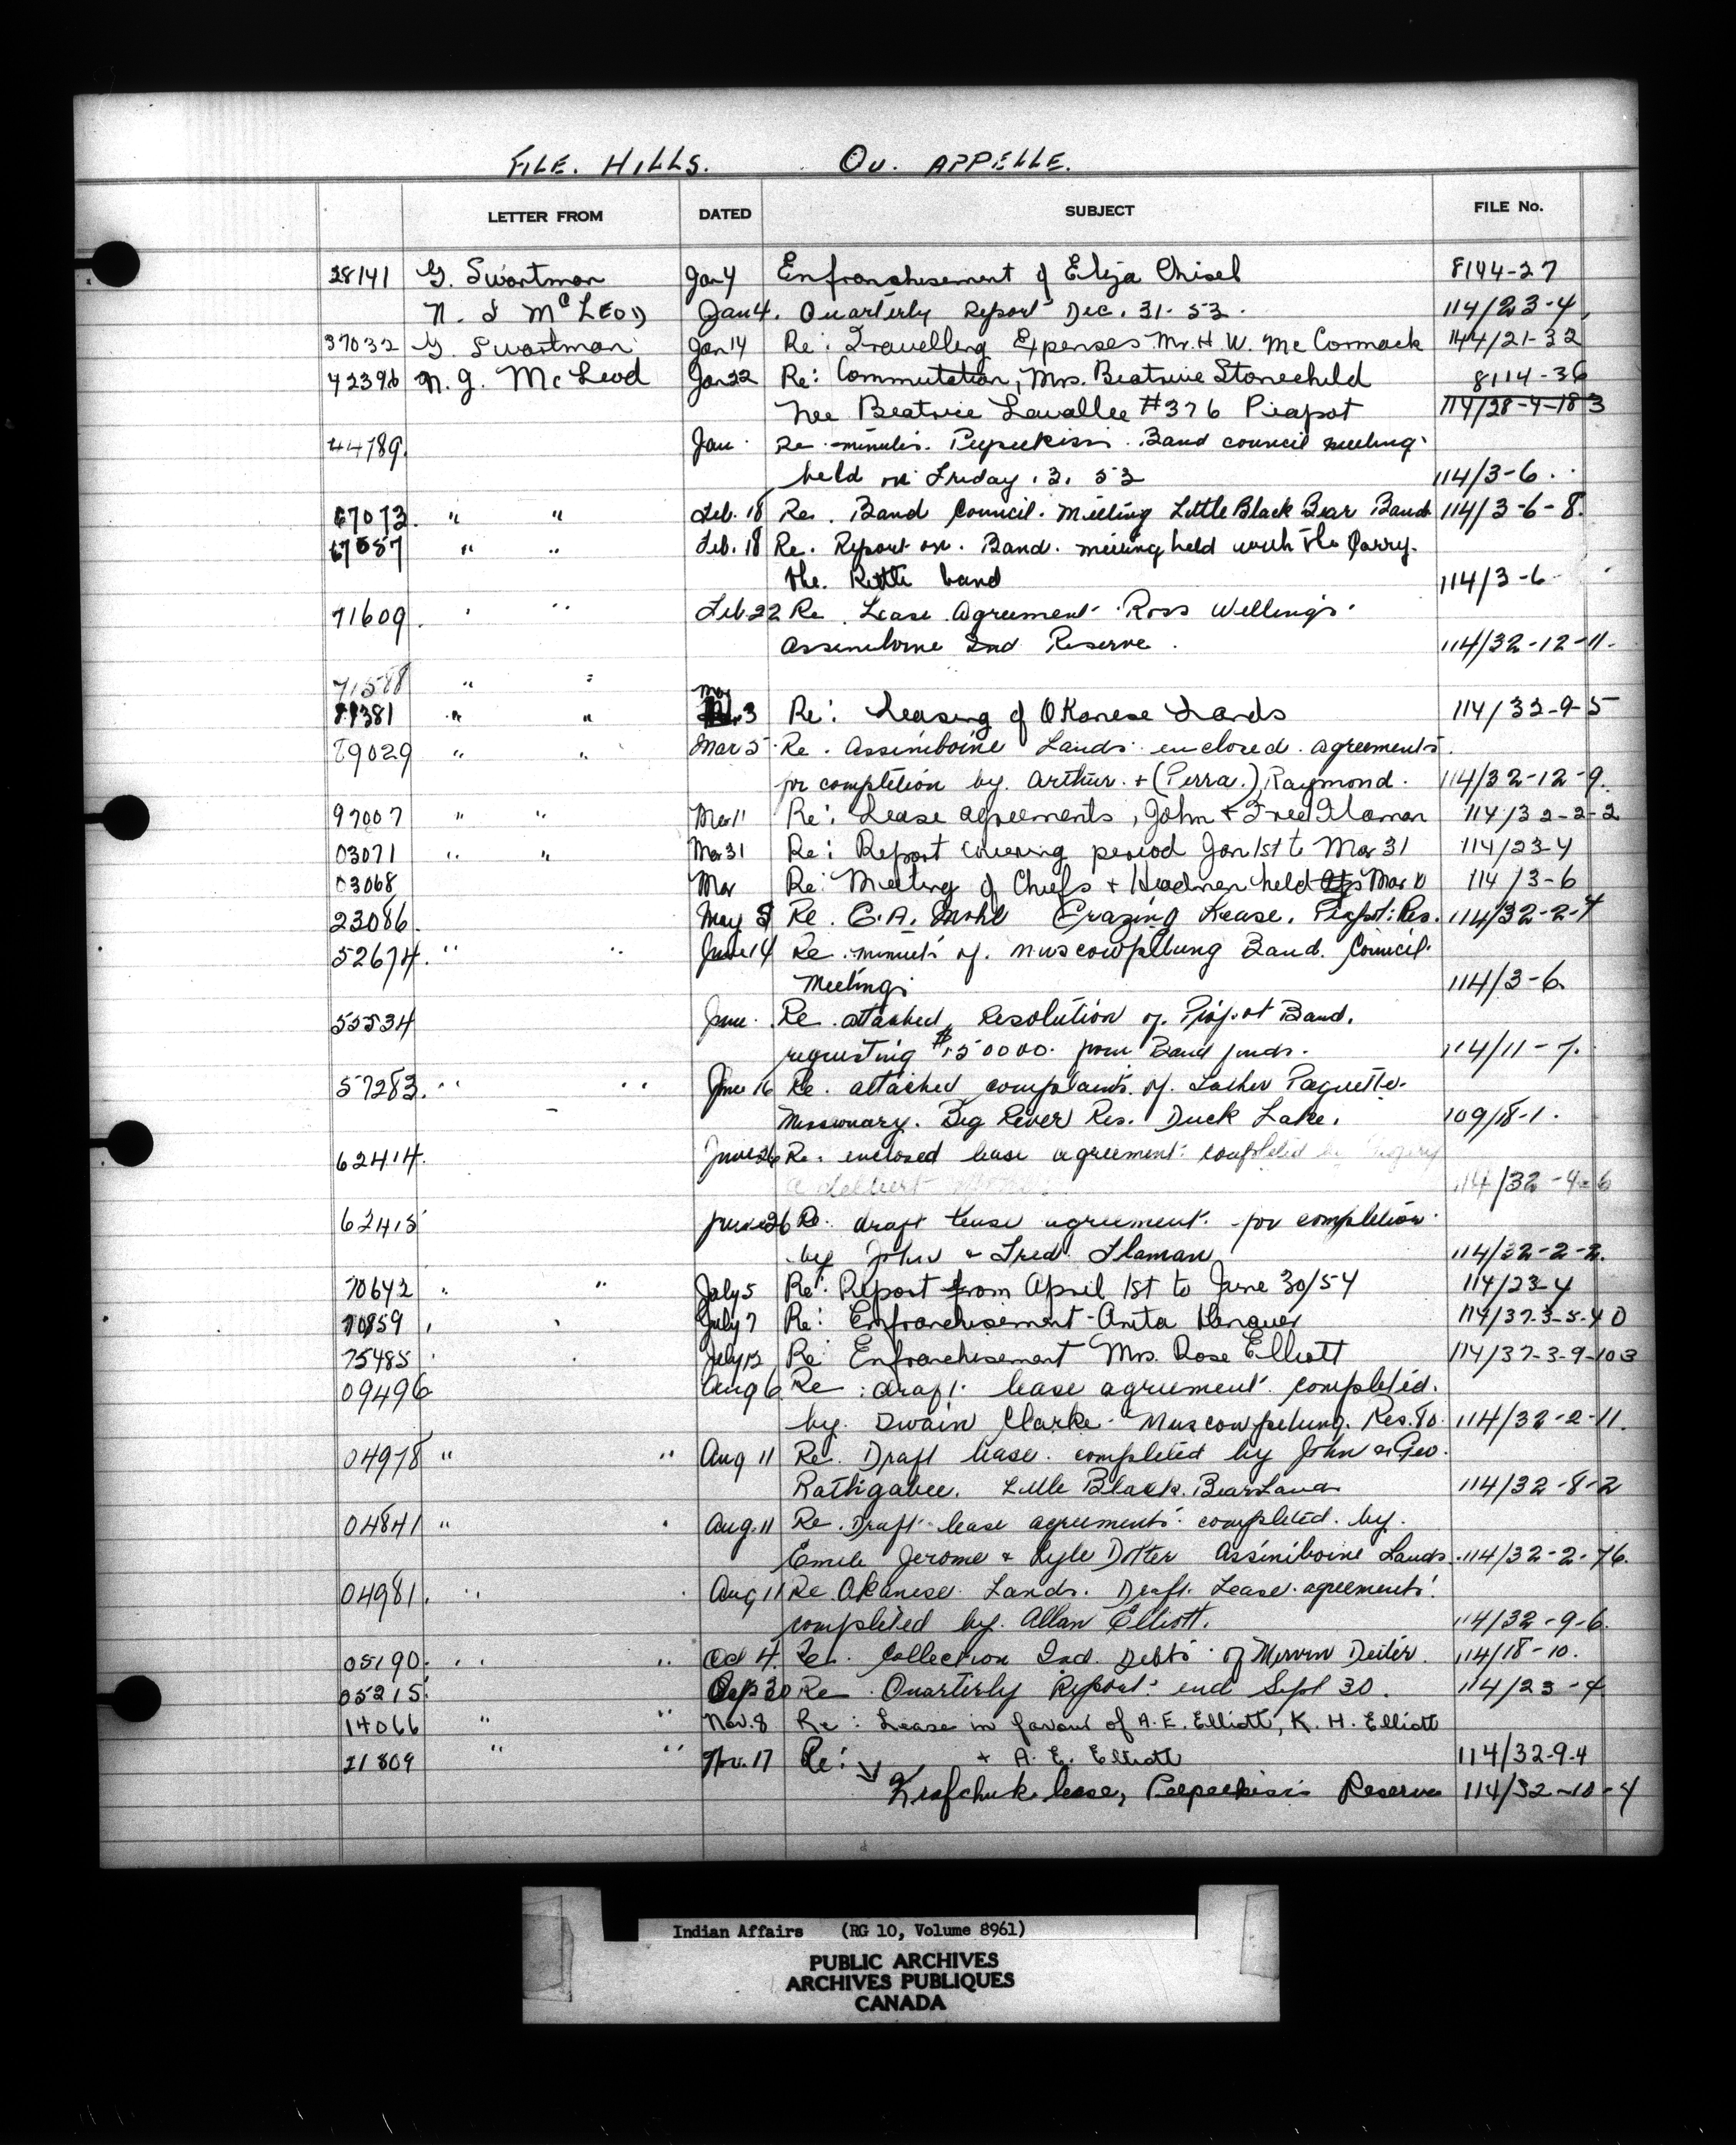 FILE. HILLS. QU. APPELLE.
LETTER FROM DATED SUBJECT FILE No.
28141 G. Swartman Jan 4 Enfranchisement of Eliza Chisel 8144-27
N. J McLEOD Jan 4. Quarterly Report Dec. 31. 53. 114/23-4
37032 G. Swartman Jan 14 Re: Travelling Expenses Mr. H. W. McCormack 144/21-32
42396 N. J. McLeod Jan 22 Re: Commutation, Mrs. Beatrice Stonechild 8114-36
nee Beatrice Lavallee #376 Piapot 114/28-4-183
44789. Jan. Re minutes. Peepeekisis. Band council meeting
held on Friday. 3. 53 114/3-6.
67073. " " Feb. 18 Re. Band Council. Meeting Little Black Bear Band 114/3-6-8.
67087 " " Feb. 18 Re. Report on. Band. meeting held with the Carry.
the. Kettle band 114/3-6
71609. " " Feb. 22 Re. Lease Agreement Ross Wellings.
Assiniboine Ind Reserve. 114/32-12-11.
71588 " "
81381 " " Mar 3 Re: Leasing of Okanese Lands 114/32-9-5
89029 " " Mar 5. Re. Assiniboine Lands enclosed agreements.
for completion by. Arthur. + (Perra.) Raymond. 114/32-12-9.
97007 " " Mar 11 Re: Lease agreements, John + Fred Flaman 114/32-2-2
03071 " " Mar 31 Re: Report covering period Jan 1st to Mar 31 114/23-4
03068 Mar Re: Meeting of Chiefs + Headmen held Mar 10 114/3-6
23086. May 5 Re. C. A. Mohl Grazing Lease. Piapot: Res. 114/32-2-4
52674. " " June 14 Re. minutes of. Muscowpetung Band. Council.
Meeting. 114/3-6.
55534 June. Re. attached Resolution of. Piapot Band.
requesting $1500.00. from Band funds. 114/11-7.
57283. " " June 16 Re. attached complaints of. Father Paquette.
Missionary. Big River Res. Duck Lake. 109/18-1.
62414. June 26 Re. enclosed lease agreement: completed by
Adelbert 114/32-4-6
62415 June 26 Re. draft lease agreement. for completion
by John & Fred. Flaman 114/32-2-2.
70642 " " July 5 Re: Report from April 1st to June 30/54 114/23-4
70859 " " July 7 Re: Enfranchisement - Anita 114/37-3-5-40
75485 " " July 12 Re: Enfranchisement Mrs. Rose Elliott 114/37-3-9-103
09496 Aug 6 Re: draft lease agreement. completed.
by. Dwain Clarke. Muscowpetung. Res. 80. 114/32-2-11.
04978 " " Aug 11 Re. Draft lease. completed by John & Geo.
Little Black. Bear Lands 114/32-8-2
04841 " " Aug. 11 Re. Draft lease agreements. completed. by.
Emile Jerome & Lyle Dotter Assiniboine Lands. 114/32-2-76.
04981. " " Aug 11 Re Okanese. Lands. Draft. Lease. agreements.
completed by. Allan Elliott. 114/32-9-6.
05190. " " Oct 4. Re. Collection Ind. Debts of Mervin Deiter. 114/18-10.
05215. Sep 30 Re Quarterly Report: end Sept 30. 114/23-4
14066 " " Nov. 8 Re: Lease in favour of A. E. Elliott, K. H. Elliott
+ A. E. Elliott 114/32-9-4
21809 " " Nov. 17 Re:
Krafchuk lease, Peepeekisis Reserve 114/32-10-4
Indian Affairs (RG 10, Volume 8961)
PUBLIC ARCHIVES
ARCHIVES PUBLIQUES
CANADA